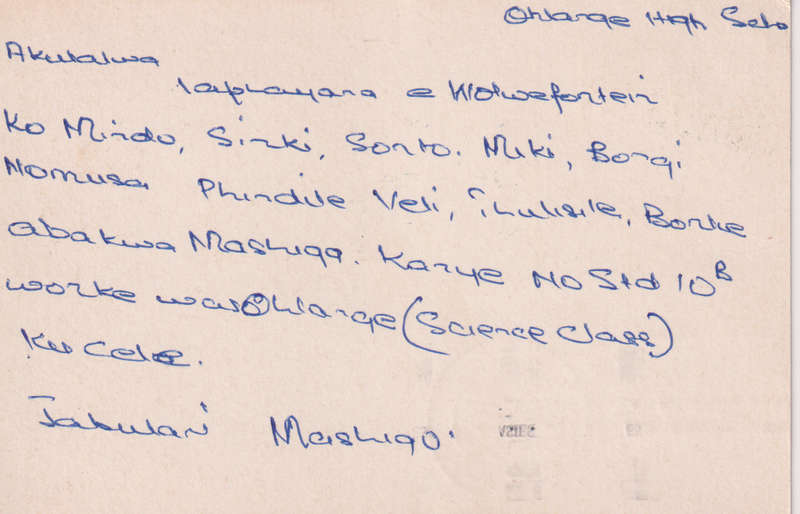 Ohlange High Scho
Akulalwa
laphayana e Wolwefontein
Ko Mindo, Sinki, Sonto. Miki, Bongi
Nomusa Phindile Veli, Thulisile, Bonke
abakwa Mashigo. Kanye No Std 10 B
wonke wasOhlange (Science Class)
Ku Cele.
Jabulani Mashigo.